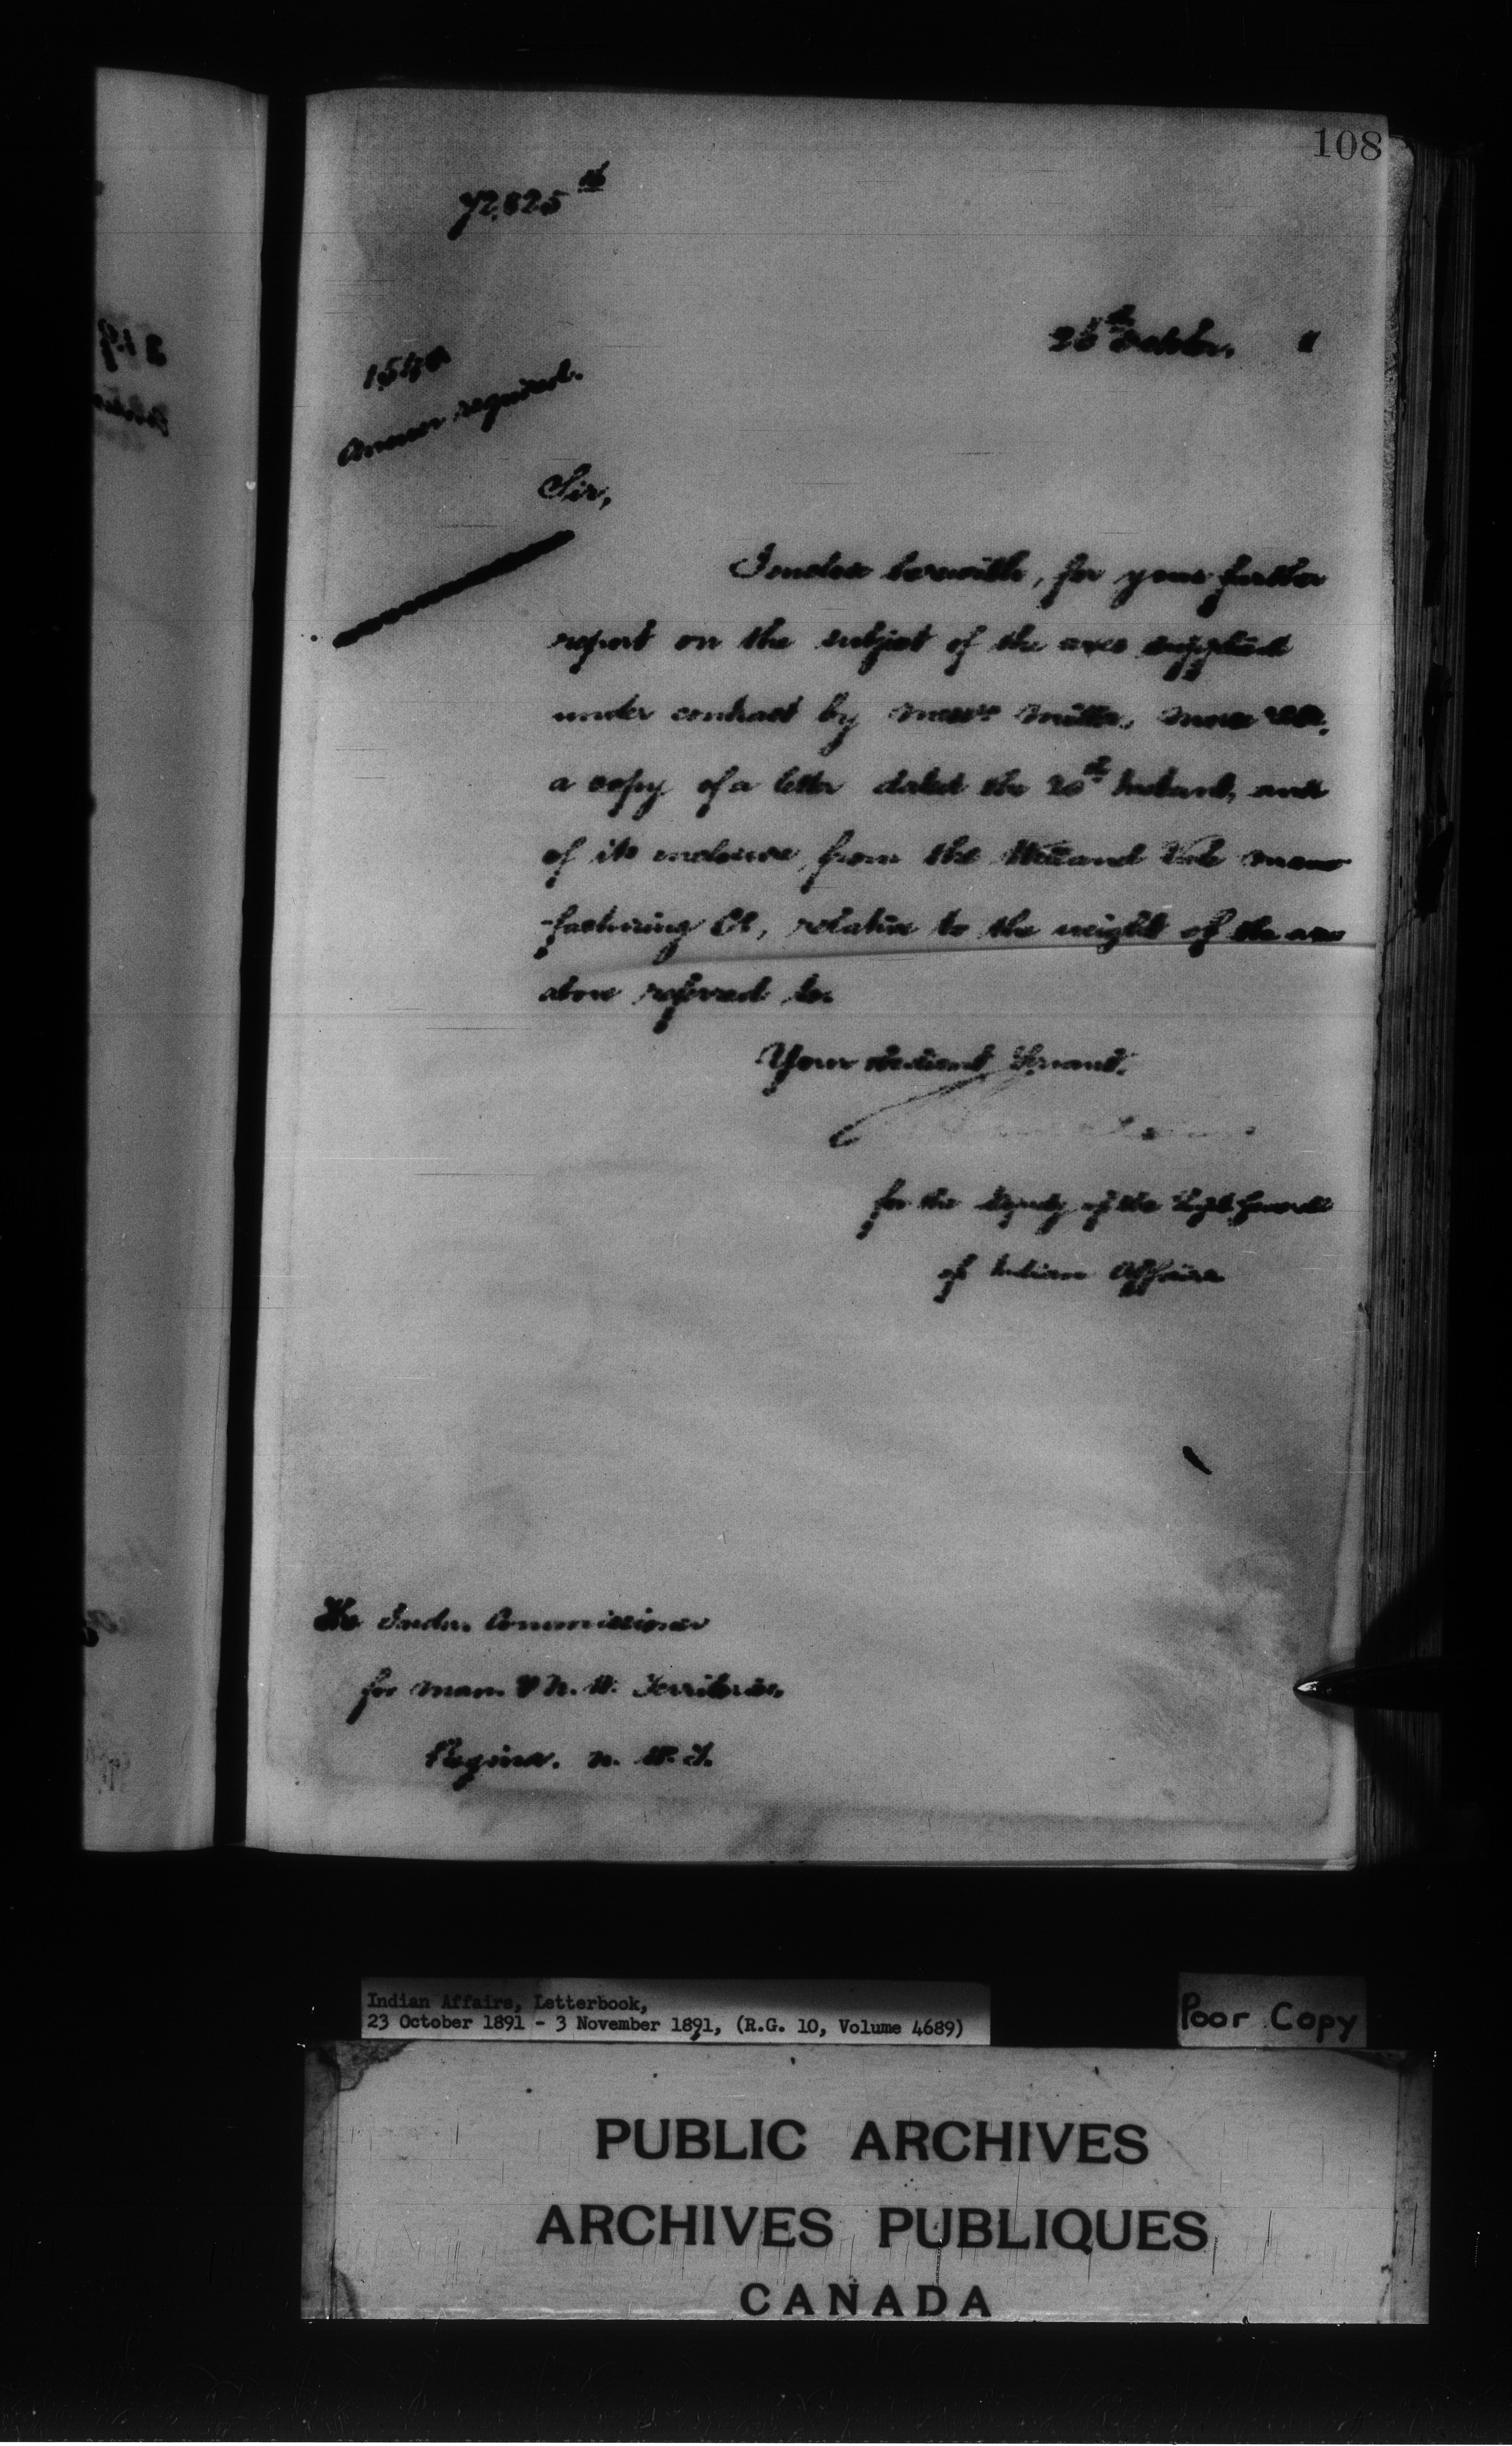 108
72,825
26th October, 1
Answer required.
Sir,
I enclose herewith, for your further
report on the subject of the axes supplied
under contract by Messrs Miller, Morse &Co.
a copy of a letter dated the 20th Instant, and
of its enclosure, from the Welland Vale Manu
-facturing Co, relative to the weight of the axes
above referred to.
Your obedient Servant,
for the Deputy of the Supt General
of Indian Affairs
The Indn. Commissioner
for Man. & N. W. Territories,
Regina. N. W. T.
Indian Affairs, Letterbook,
23 October 1891 - 3 November 1891, (R.G. 10, Volume 4689)
Poor Copy
PUBLIC ARCHIVES
ARCHIVES PUBLIQUES
CANADA